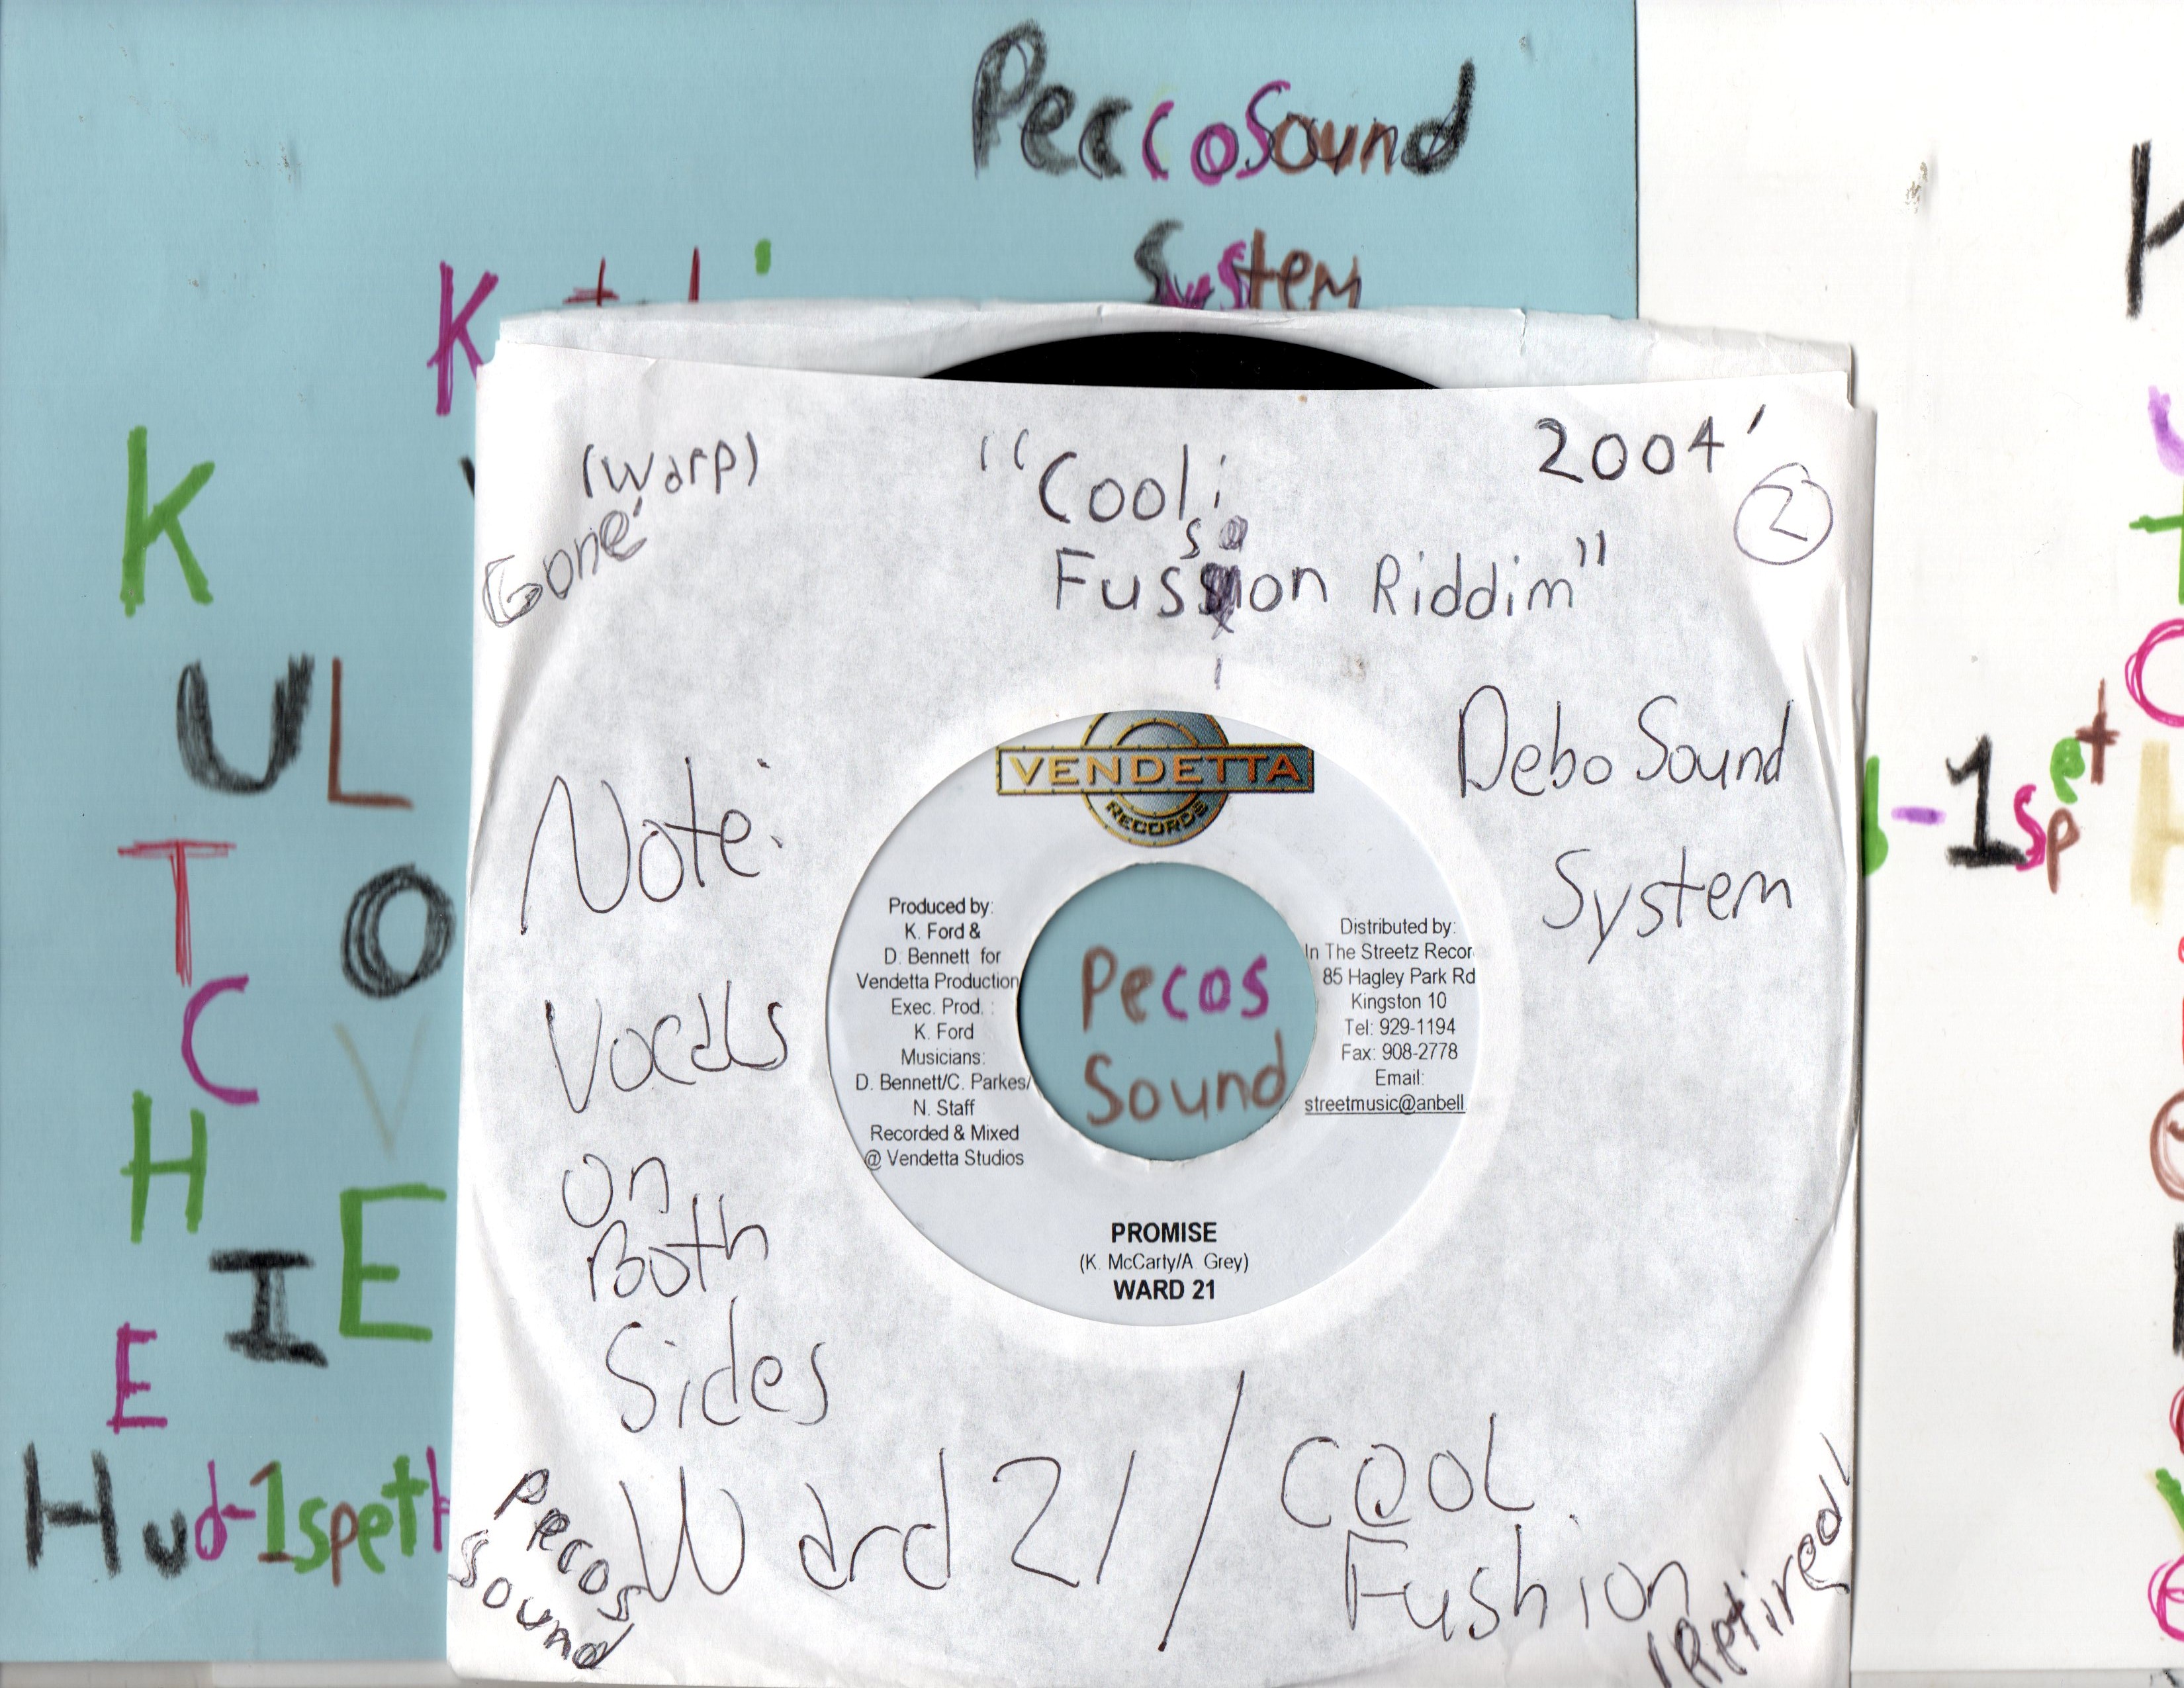 PeccoSound
System
K
K
U L
T O
C V
H E
I
E
Hud-1speth
-1spet
(Warp)
Gone'
"Cool
Fusion Riddim"
2004'
2
Note:
Vocals
on
Both
Sides
Debo Sound
System
VENDETTA
RECORDS
Produced by:
K. Ford &
D. Bennett for
Vendetta Production
Exec. Prod. :
K. Ford
Musicians:
D. Bennett/C. Parkes/
N. Staff
Recorded & Mixed
@ Vendetta Studios
Pecos
Sound
Distributed by:
In The Streetz Recor
85 Hagley Park Rd
Kingston 10
Tel: 929-1194
Fax: 908-2778
Email:
streetmusic@anbell
PROMISE
(K. McCarty/A. Grey)
WARD 21
Ward 21 / COOL
Fushion
Pecos
Sound
(Retired)